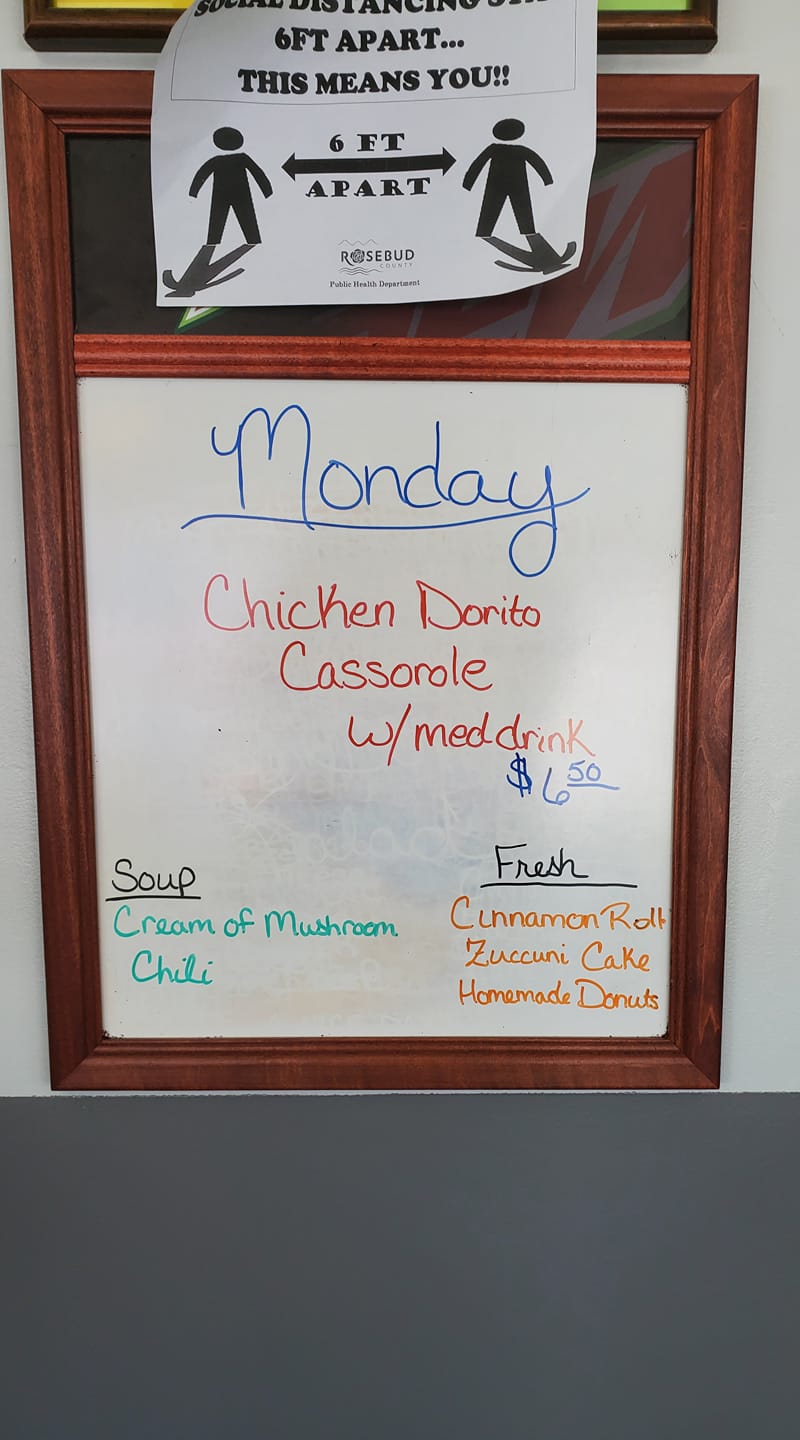 SOCIAL DISTANCING
6FT APART...
THIS MEANS YOU!!
6 FT
APART
ROSEBUD
COUNTY
Public Health Department
Monday
Chicken Dorito
Cassorole
w/ med drink
$6.50
Soup
Cream of Mushroom
Chili
Fresh
Cinnamon Roll
Zuccuni Cake
Homemade Donuts